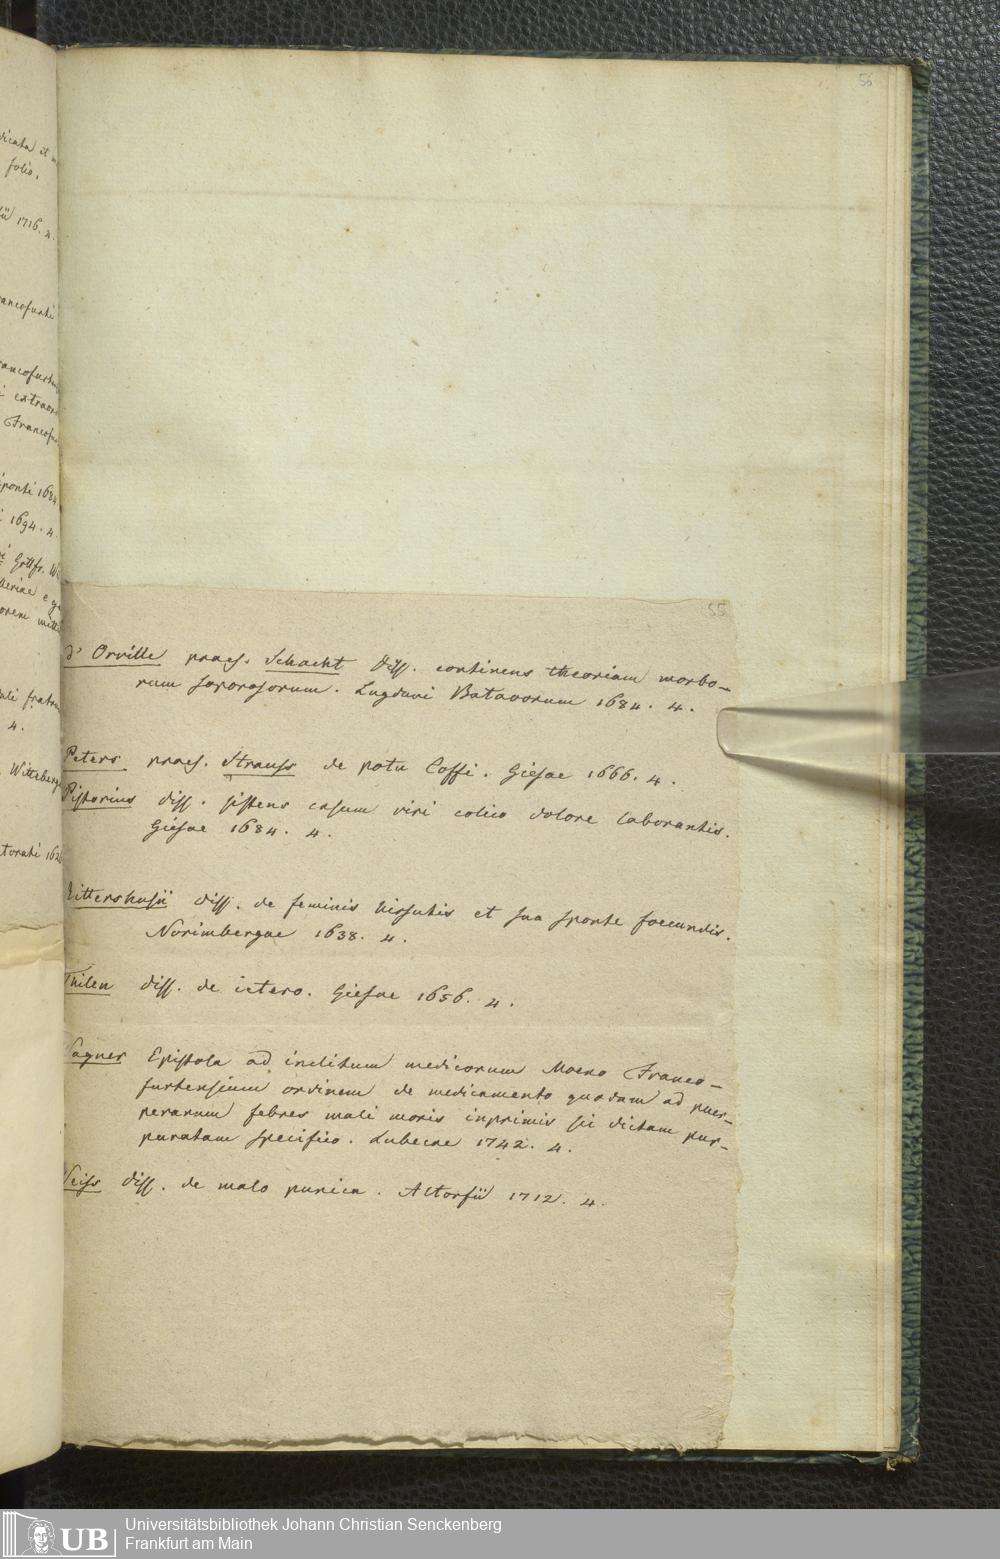 dicata et
folio.
1716. 4.
Francofurti
extraor
Francofur
1684
1694. 4.
Gottfr.
fratru
4.
Witteberg
56
55
d'Orville praes. Schacht Diss. continens theoriam morbo-
rum soporosorum. Lugduni Batavorum 1684. 4.
Peters praes. Strauss de potu Coffi. Giesae 1666. 4.
Pistorius diss. sistens casum viri colico dolore laborantis.
Giesae 1684. 4.
Rittershusii diss. de feminis hirsutis et sua sponte foecundis.
Norimbergae 1638. 4.
Thilen diss. de ictero. Giesae 1656. 4.
Wagner Epistola ad inclitum medicorum Moeno Franco-
furtensium ordinem de medicamento quodam ad puer-
perarum febres mali moris inprimis sic dictam pur-
puratam specifico. Lubecae 1742. 4.
Weiss diss. de malo punica. Altorfii 1712. 4.
UB
Universitätsbibliothek Johann Christian Senckenberg
Frankfurt am Main